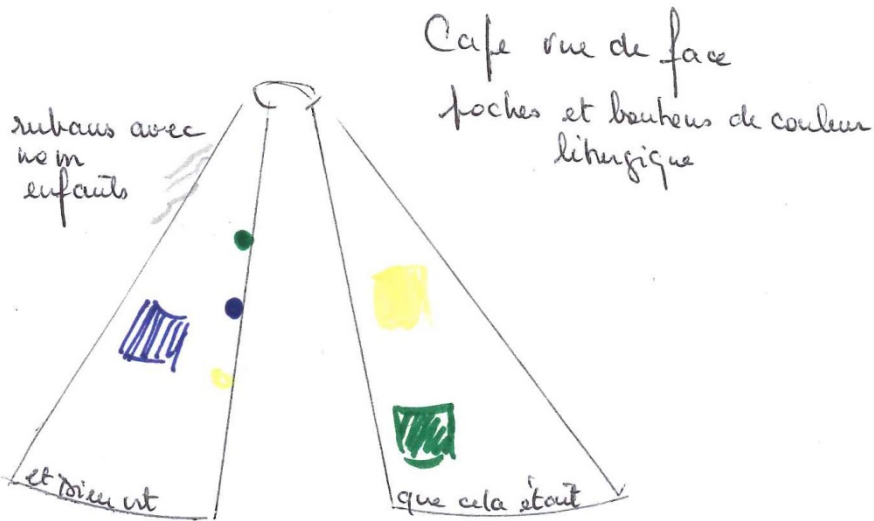 Cape vue de face
poches et boutons de couleur
liturgique
rubans avec
nom
enfants
et Dieu vit
que cela était